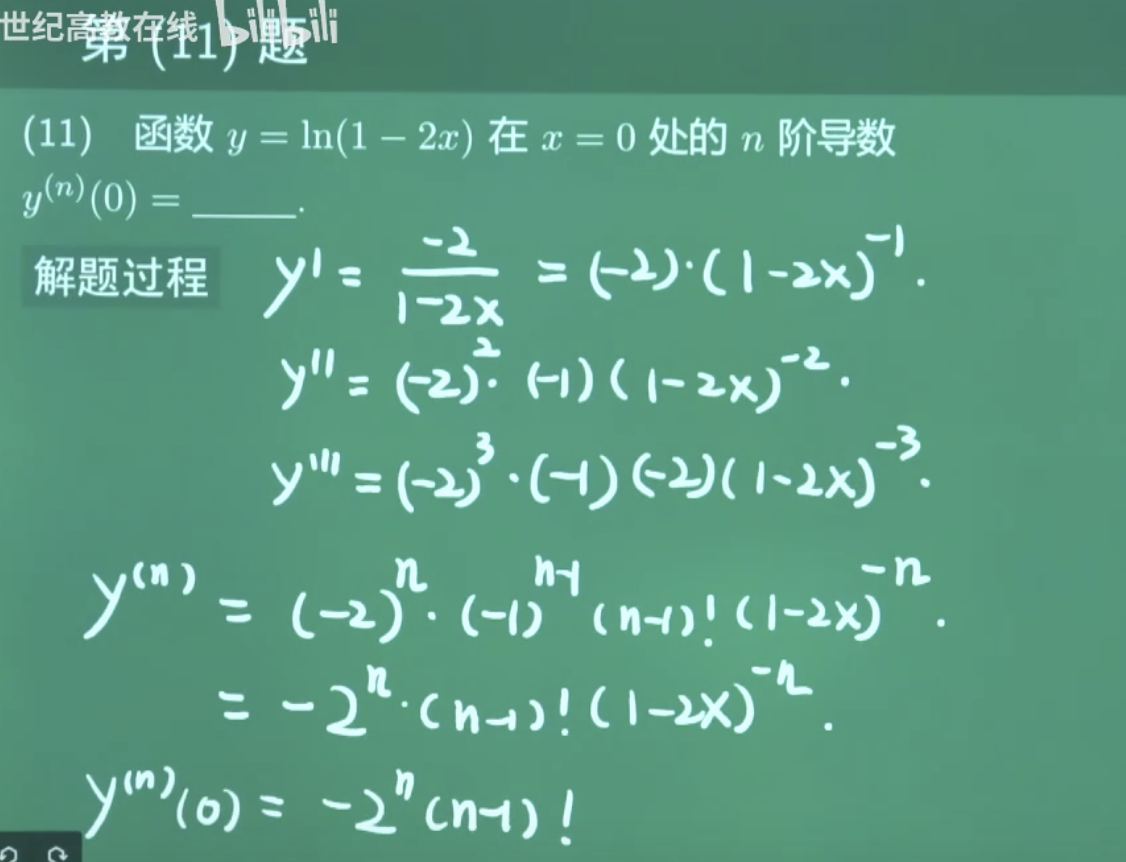 世纪高教在线 bilibili
第 (11) 题
(11) 函数 y = ln(1 − 2x) 在 x = 0 处的 n 阶导数
y^(n)(0) = _____.
解题过程 y' = -2/(1-2x) = (-2)·(1-2x)^-1.
y'' = (-2)^2·(-1)(1-2x)^-2.
y''' = (-2)^3·(-1)(-2)(1-2x)^-3.
y^(n) = (-2)^n·(-1)^n-1 (n-1)!(1-2x)^-n.
= -2^n·(n-1)!(1-2x)^-n.
y^(n)(0) = -2^n(n-1)!